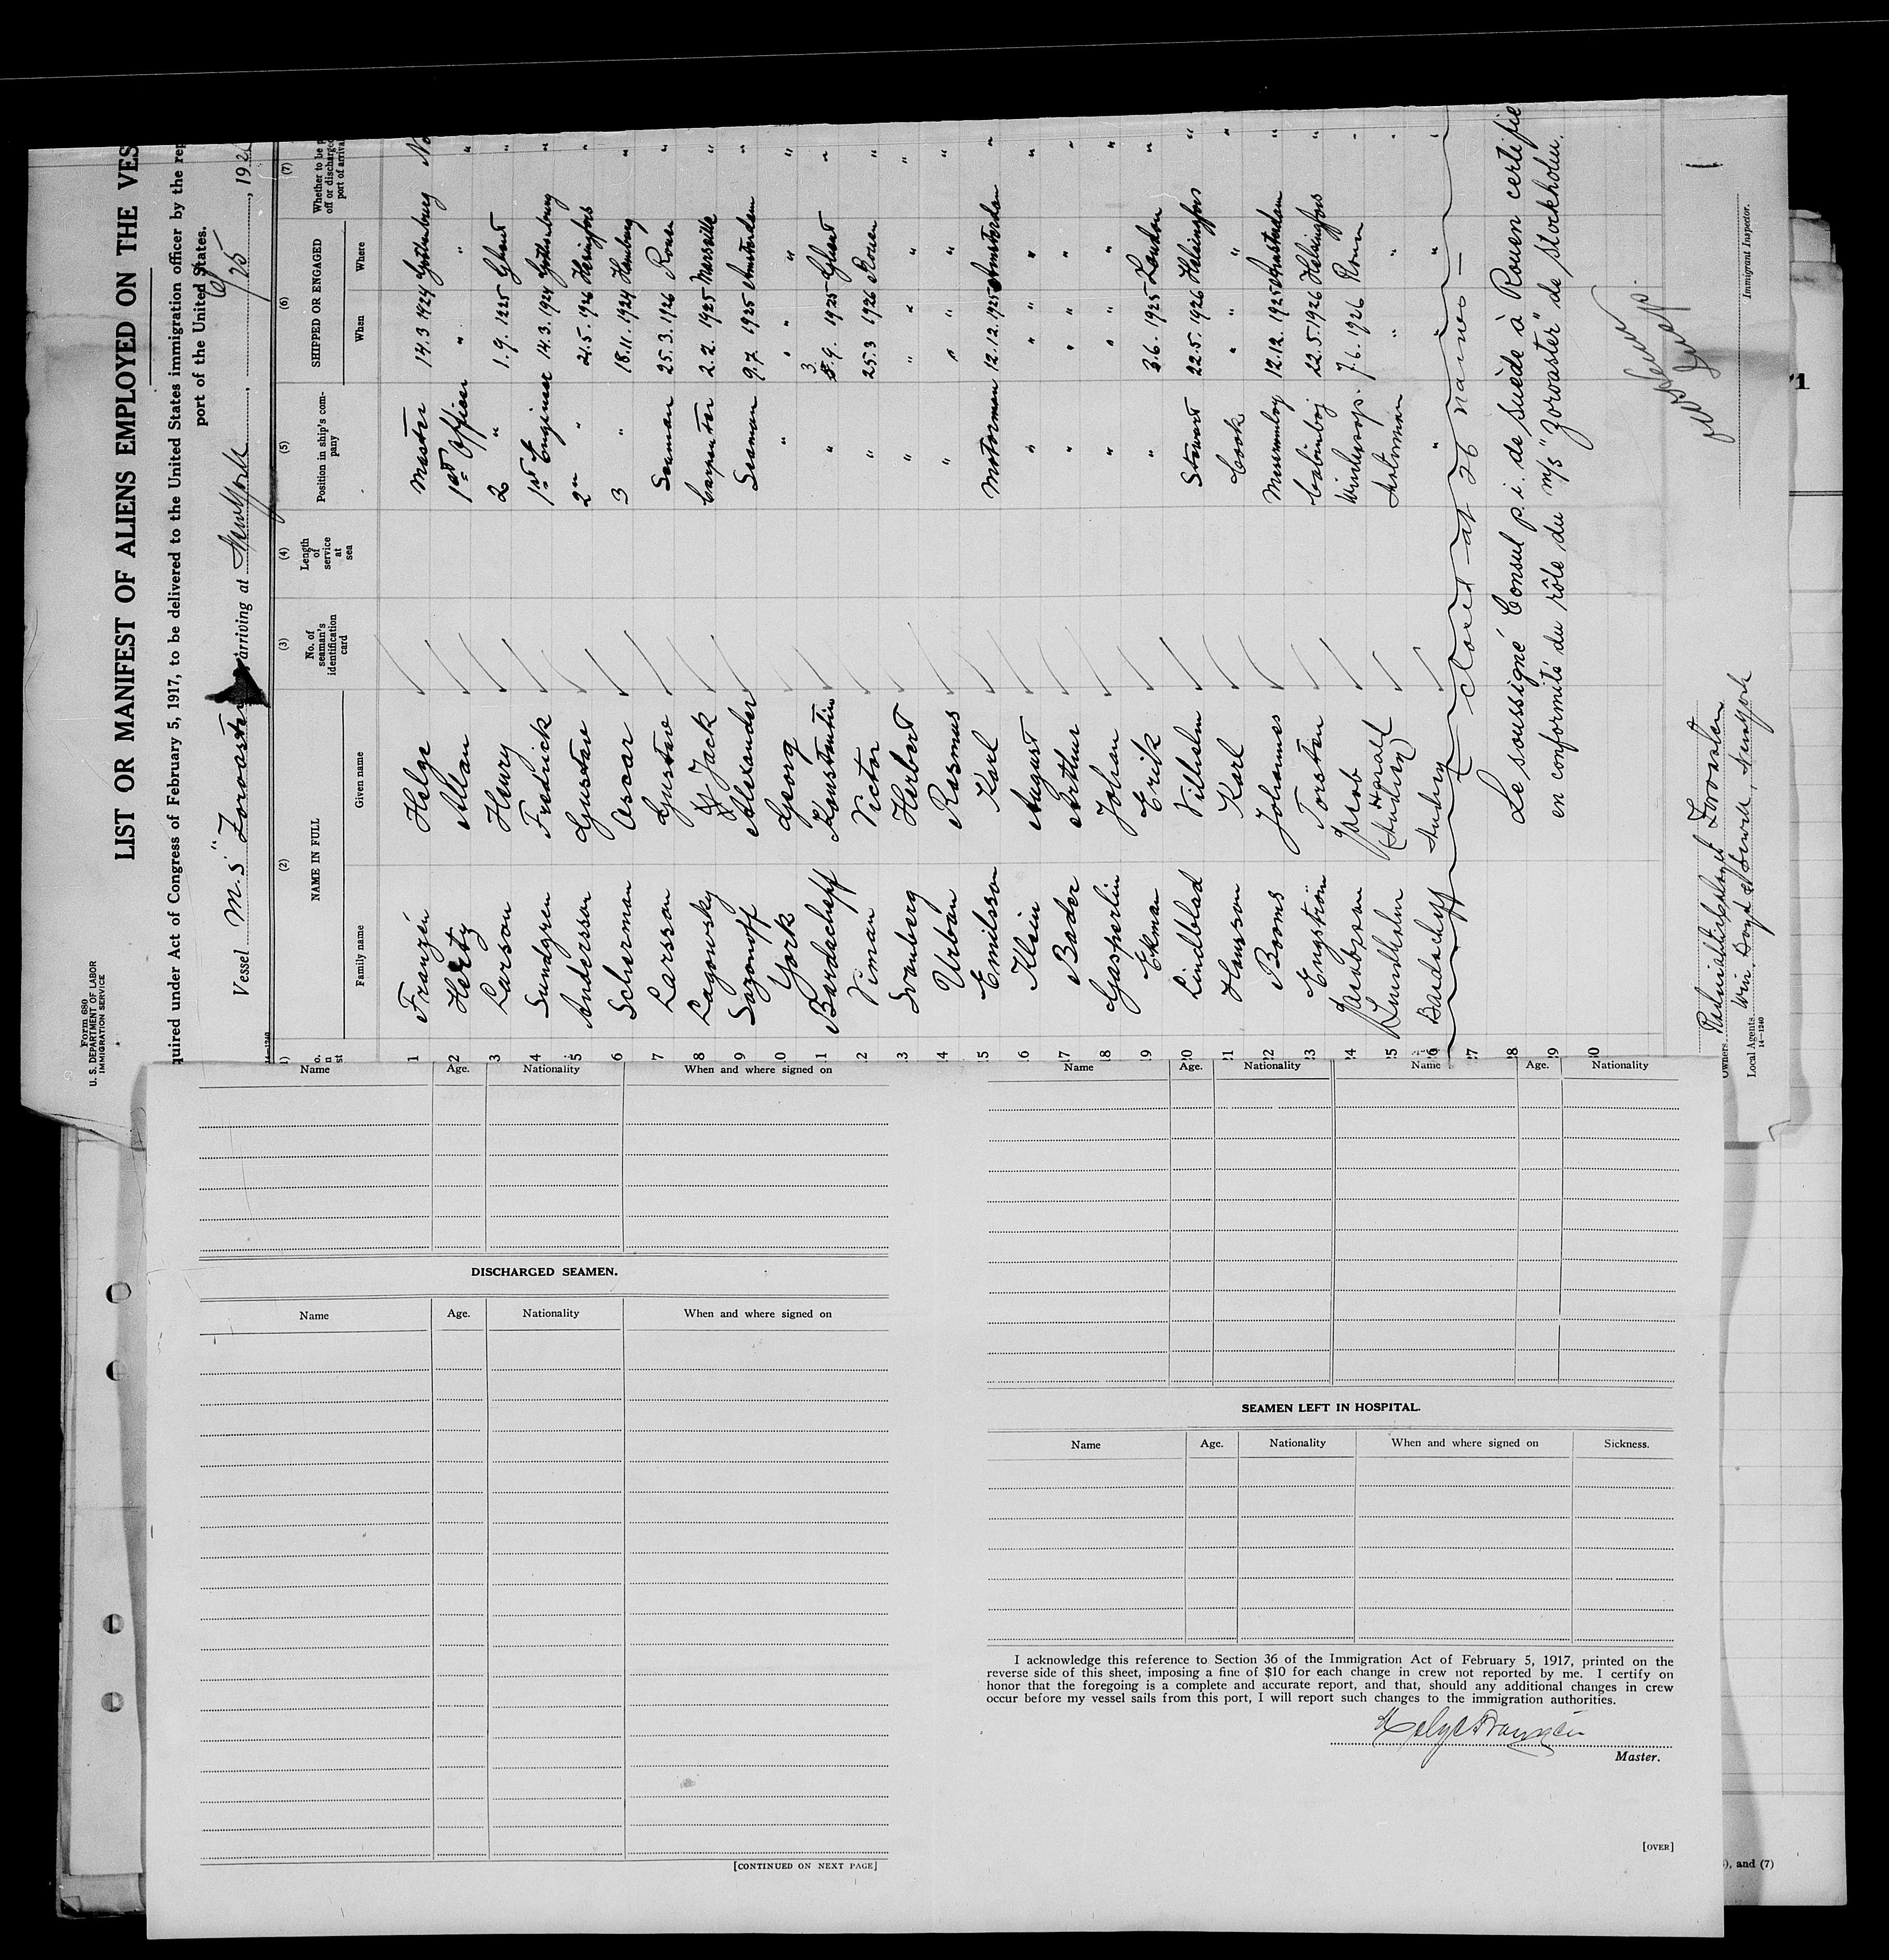 Form 680
U. S. DEPARTMENT OF LABOR
IMMIGRATION SERVICE
LIST OR MANIFEST OF ALIENS EMPLOYED ON THE VES
quired under Act of Congress of February 5, 1917, to be delivered to the United States immigration officer by the rep
port of the United States.
Vessel M.S "Zoroaster" arriving at New York, 192
14—1240
(2) (3) (4) (5) (6) (7)
NAME IN FULL
Family name Given name
No. of seaman's identification card
Length of service at sea
Position in ship's company
SHIPPED OR ENGAGED
When Where
Whether to be
off or discharged
port of arrival
1 Franzén Helge Master 14.3 1924 Gothenburg No
2 Hertz Allan 1st Officer " " "
3 Larson Henry 2 " 1.9. 1925 Ghent "
4 Sundgren Fredrick 1st Engineer 14.3. 1924 Gothenburg "
5 Andersson Gustav 2n " 21.5. 1926 Helsingfors "
6 Scherman Oscar 3 " 18.11. 1924 Hamburg "
7 Larsson Gustav Seaman 25.3. 1926 Rouen "
8 Lagowsky Jack Carpenter 2.2. 1925 Marseille "
9 Sazonoff Alexander Seaman 9.7. 1925 Amsterdam "
10 York Georg " " " "
11 Bardacheff Konstantin " 3.9. 1925 Ghent "
12 Viman Victor " 25.3 1926 Rouen "
13 Svanberg Herbert " " " "
14 Urban Rasmus " " " "
15 Emilsson Karl Motorman 12.12. 1925 Amsterdam "
16 Klein August " " " "
17 Bader Arthur " " " "
18 Gasperlin Johan " " " "
19 Ekman Erik 3.6. 1925 London "
20 Lindblad Vilhelm Steward 22.5. 1926 Helsingfors "
21 Hansson Karl Cook " " "
22 Booms Johannes Messroomboy 12.12. 1925 Amsterdam "
23 Engström Torsten Cabinboy 22.5. 1926 Helsingfors "
24 Jacobson Jacob 7.6. 1926 Rouen "
25 Lundholm Harald " " "
26 Bardacheff Andrey " " " "
27 Closed at 26 names —
28 Le soussigné Consul p. i. de Suède à Rouen certifie
29 en conformité du rôle du m/s "Zoroaster" de Stockholm.
30
Immigrant Inspector.
Owners Zoroaster
Local Agents New York
14—1240
Name Age. Nationality When and where signed on
DISCHARGED SEAMEN.
Name Age. Nationality When and where signed on
[CONTINUED ON NEXT PAGE]
Name Age. Nationality Name Age. Nationality
SEAMEN LEFT IN HOSPITAL.
Name Age. Nationality When and where signed on Sickness.
I acknowledge this reference to Section 36 of the Immigration Act of February 5, 1917, printed on the
reverse side of this sheet, imposing a fine of $10 for each change in crew not reported by me. I certify on
honor that the foregoing is a complete and accurate report, and that, should any additional changes in crew
occur before my vessel sails from this port, I will report such changes to the immigration authorities.
Helge Franzén
Master.
[OVER]
), and (7)